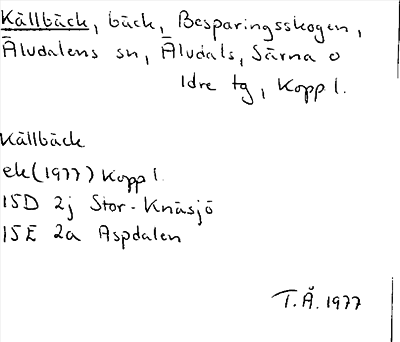 Källbäck, bäck, Besparingsskogen,
Äludalens sn, Äludals, Särna o
Idre tg, Kopp l.
Källbäck
ek (1977) Kopp l.
15D 2j Stor-Knäsjö
15E 2a Aspdalen
T.Å. 1977